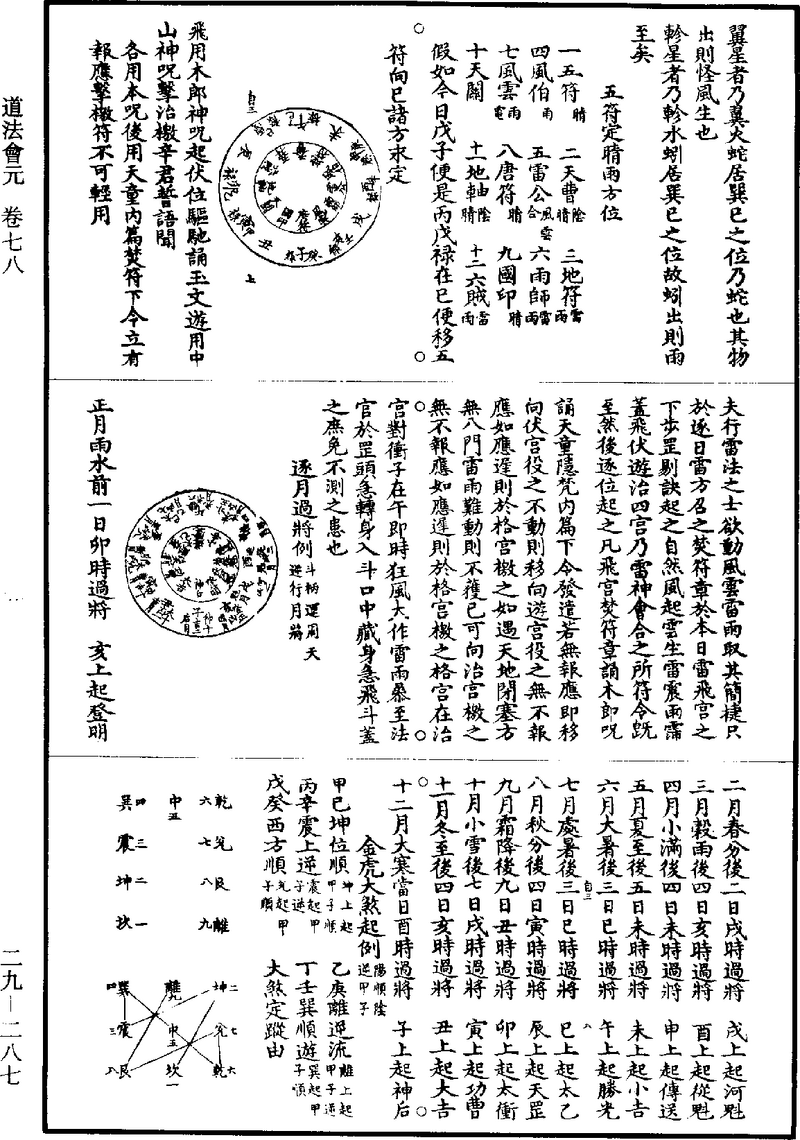 道法會元　卷七八
二九—二八七
翼星者乃翼火蛇居巽巳之位乃蛇也其物
出則怪風生也
軫星者乃軫水蚓居巽巳之位故蚓出則雨
至矣
五符定晴雨方位
一五符晴　二天曹陰晴　三地符雲雨
四風伯雨　五雷公風雲合　六雨師雷雨
七風雲雨電　八唐符晴　九國印晴
十天關　十一地軸陰晴　十二六賊雷雨
假如今日戊子便是丙戊祿在巳便移五
符向巳諸方求定
飛用木郎神呪起伏位驅馳誦玉文遊用中
山神呪擊治檄辛君誓語聞
各用本呪後用天童內篇焚符下令立有
報應擊檄符不可輕用
夫行雷法之士欲動風雲雷雨取其簡捷只
於逐日雷方召之焚符章於本日雷飛宮之
下步罡剔訣起之自然風起雲生雷震雨霈
蓋飛伏遊治四宮乃雷神會合之所符令既
至然後逐位起之凡飛宮焚符章誦木郎呪
誦天童隱梵內篇下令發遣若無報應即移
向伏宮役之不動則移向遊宮役之無不報
應如應遲則於格宮檄之如遇天地閉塞方
無八門雷雨難動則不獲已可向治宮檄之
無不報應如應遲則於格宮檄之格宮在治
宮對衝子在午即時狂風大作雷雨暴至法
官於罡頭急轉身入斗口中藏身急飛斗蓋
之庶免不測之患也
逐月過將例斗柄還周天逆行月將
正月雨水前一日卯時過將　亥上起登明
二月春分後二日戌時過將　戌上起河魁
三月穀雨後四日亥時過將　酉上起從魁
四月小滿後四日未時過將　申上起傳送
五月夏至後五日未時過將　未上起小吉
六月大暑後三日巳時過將　午上起勝光
七月處暑後三日巳時過將　巳上起太乙
八月秋分後四日寅時過將　辰上起天罡
九月霜降後九日丑時過將　卯上起太衝
十月小雪後七日戌時過將　寅上起功曹
十一月冬至後四日亥時過將　丑上起大吉
十二月大寒當日酉時過將　子上起神后
金虎大煞起例陽順陰逆甲子
甲己坤位順坤上起甲子順　乙庚離逆流離上起甲子逆
丙辛震上逆震起甲子逆　丁壬巽順遊巽起甲子順
戊癸西方順兌起甲子順　大煞定蹤由
乾六　兌七　艮八　離九
中五
巽四　震三　坤二　坎一
坤二　兌七　乾六
離九　中五　坎一
巽四　震三　艮八